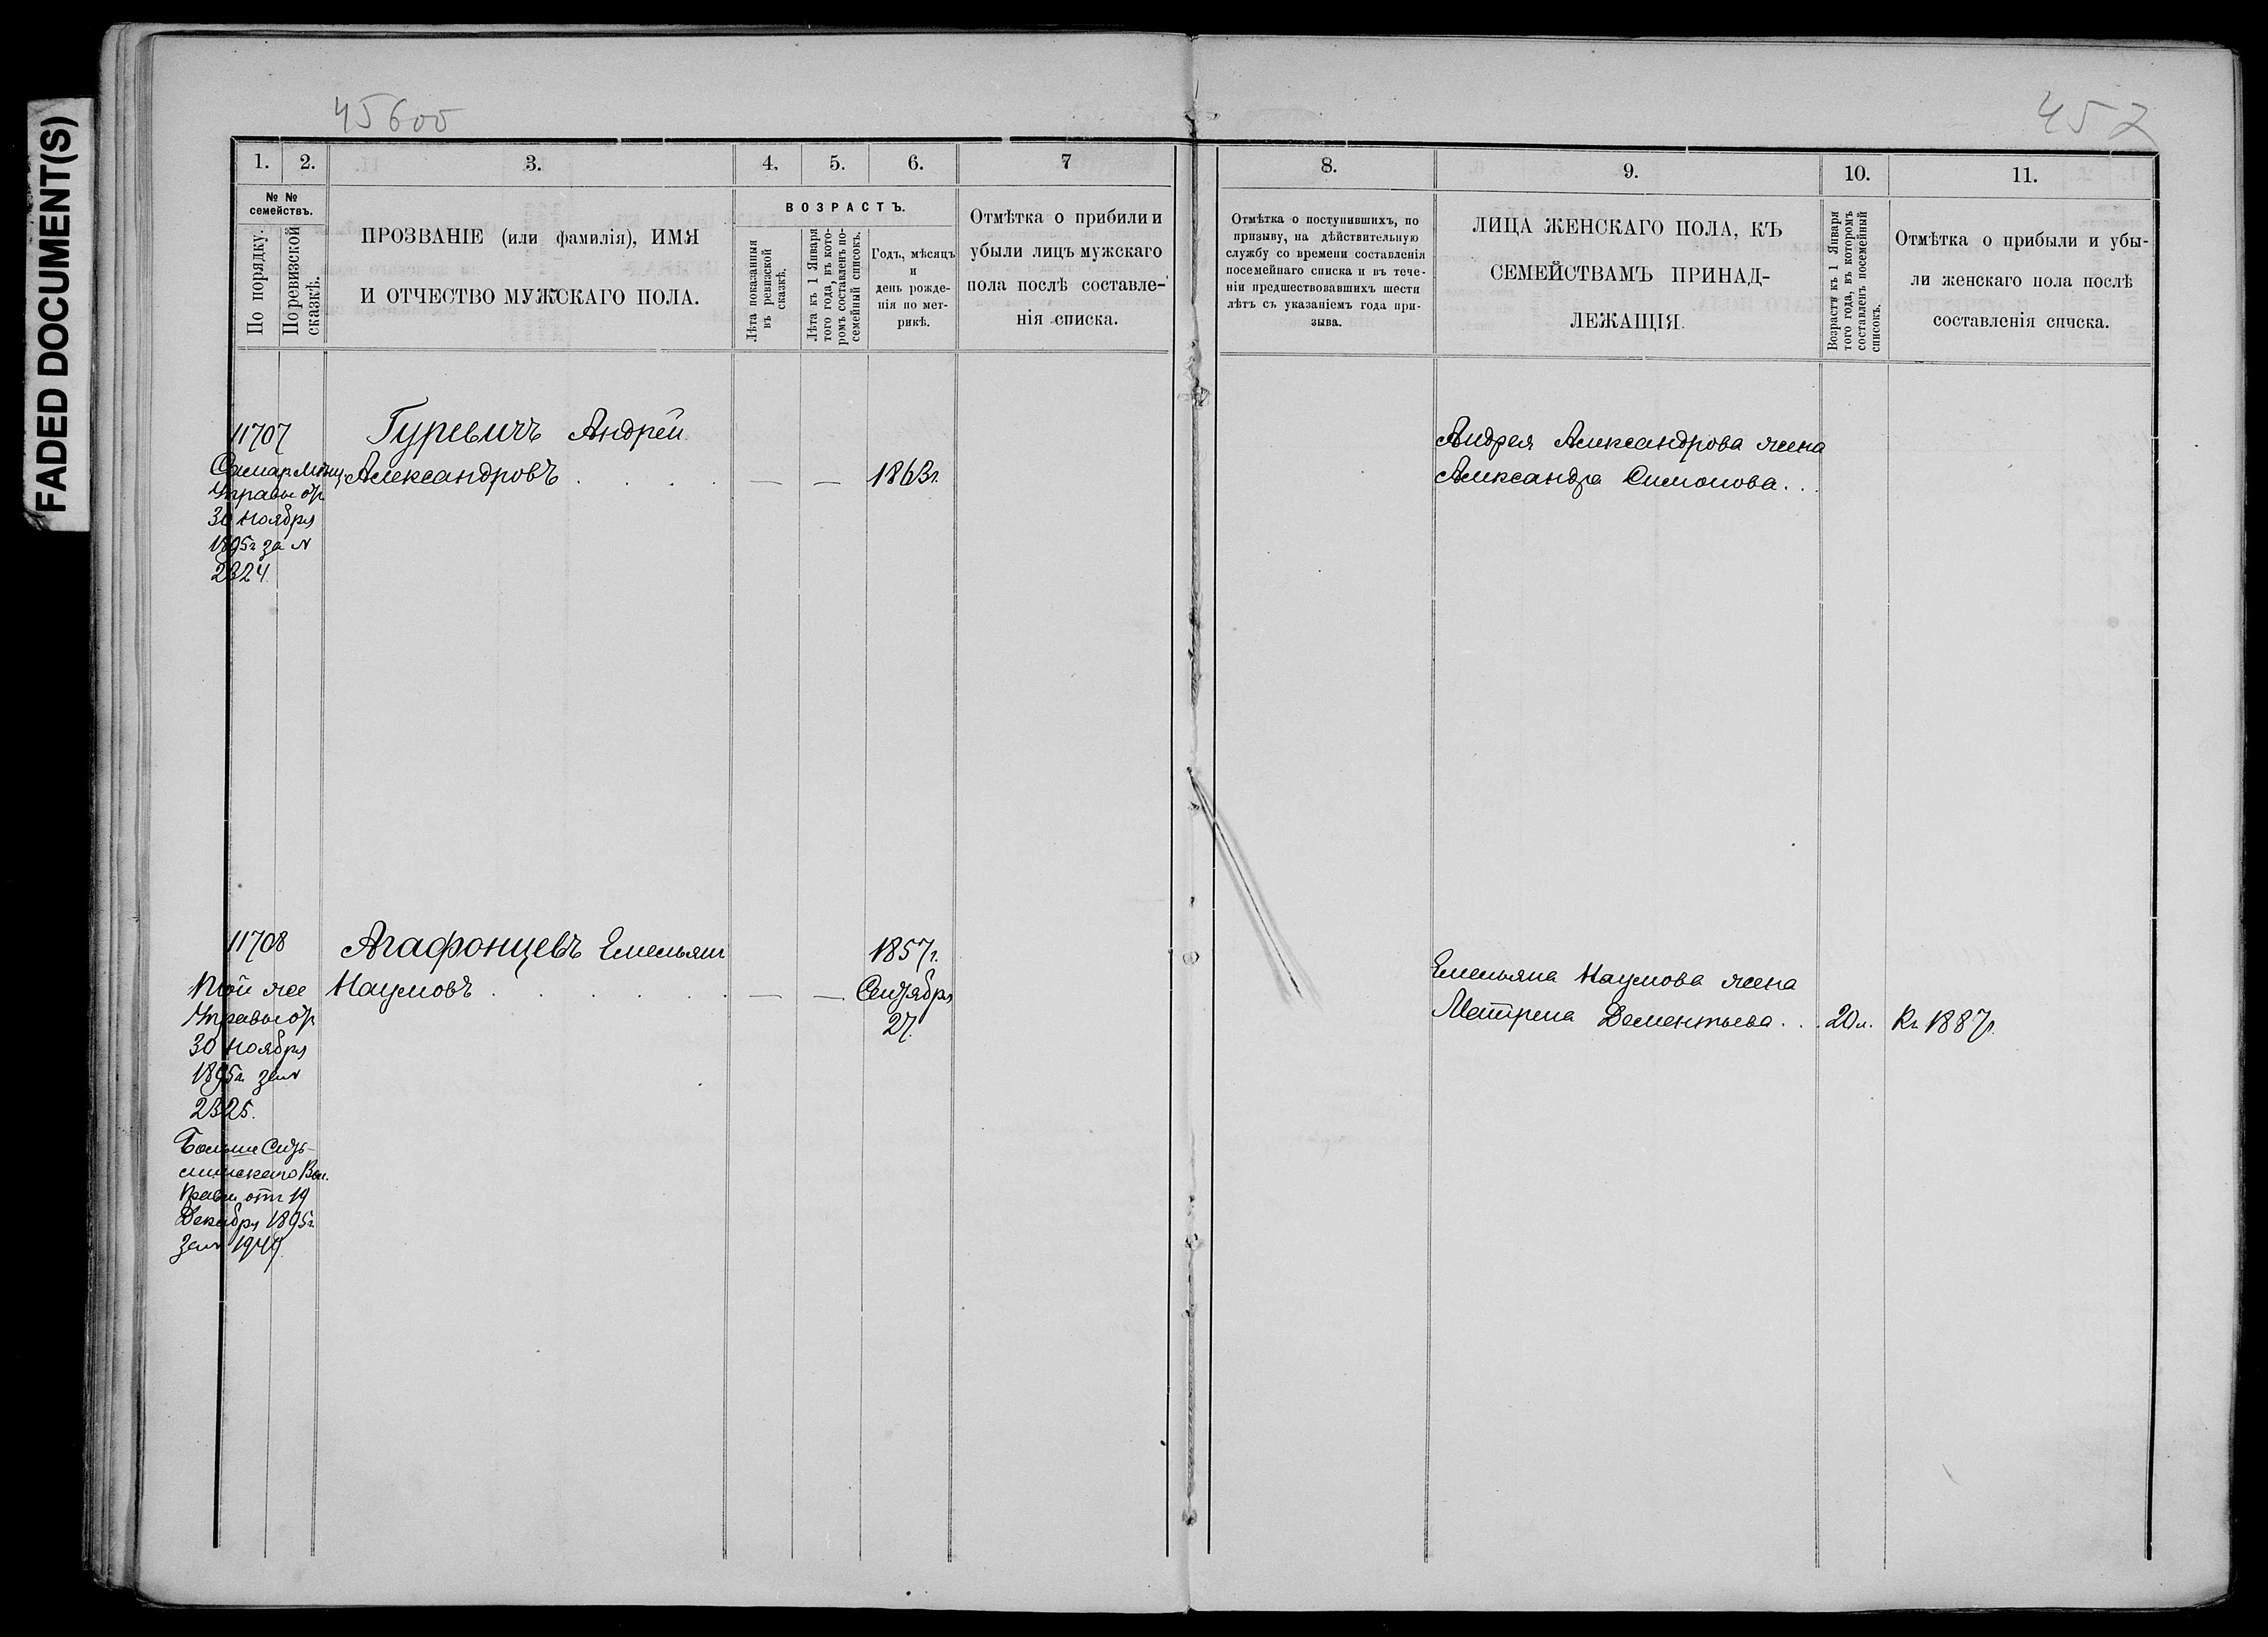 FADED DOCUMENT(S)
45600
457
1.
2.
3.
4.
5.
6.
7
№ №
семействъ.
По порядку.
По ревизской
сказкѣ.
ПРОЗВАНІЕ (или фамилія), ИМЯ
И ОТЧЕСТВО МУЖСКАГО ПОЛА.
ВОЗРАСТЪ.
Лѣта показанныя
въ ревизской
сказкѣ.
Лѣта къ 1 Января
того года, въ кото-
ромъ составленъ по-
семейный списокъ.
Годъ, мѣсяцъ
и
день рожде-
нія по мет-
рикѣ.
Отмѣтка о прибыли и
убыли лицъ мужскаго
пола послѣ составле-
нія списка.
11707
Самар Мѣщ.
Управы от
30 ноября
1895г за №
2324.
Гуревичъ Андрей
Александровъ . . . .
— — 1863г.
11708
Той же
Управы от
30 ноября
1895г. за №
2325.
Правл. отъ 19
Декабря 1895г.
за № 1949.
Агафонцевъ Емельянъ
Наумовъ . . . . .
— —
1857г.
Сентября
27.
8.
9.
10.
11.
Отмѣтка о поступившихъ, по
призыву, на дѣйствительную
службу со времени составленія
посемейнаго списка и въ тече-
ніи предшествовавшихъ шести
лѣтъ съ указаніемъ года при-
зыва.
ЛИЦА ЖЕНСКАГО ПОЛА, КЪ
СЕМЕЙСТВАМЪ ПРИНАД-
ЛЕЖАЩІЯ.
Возрастъ къ 1 Января
того года, въ которомъ
составленъ посемейный
списокъ.
Отмѣтка о прибыли и убы-
ли женскаго пола послѣ
составленія списка.
Андрея Александрова жена
Александра Симонова. . .
Емельяна Наумова жена
Матрена Дементьева. . . 20 л. Къ 1887г.